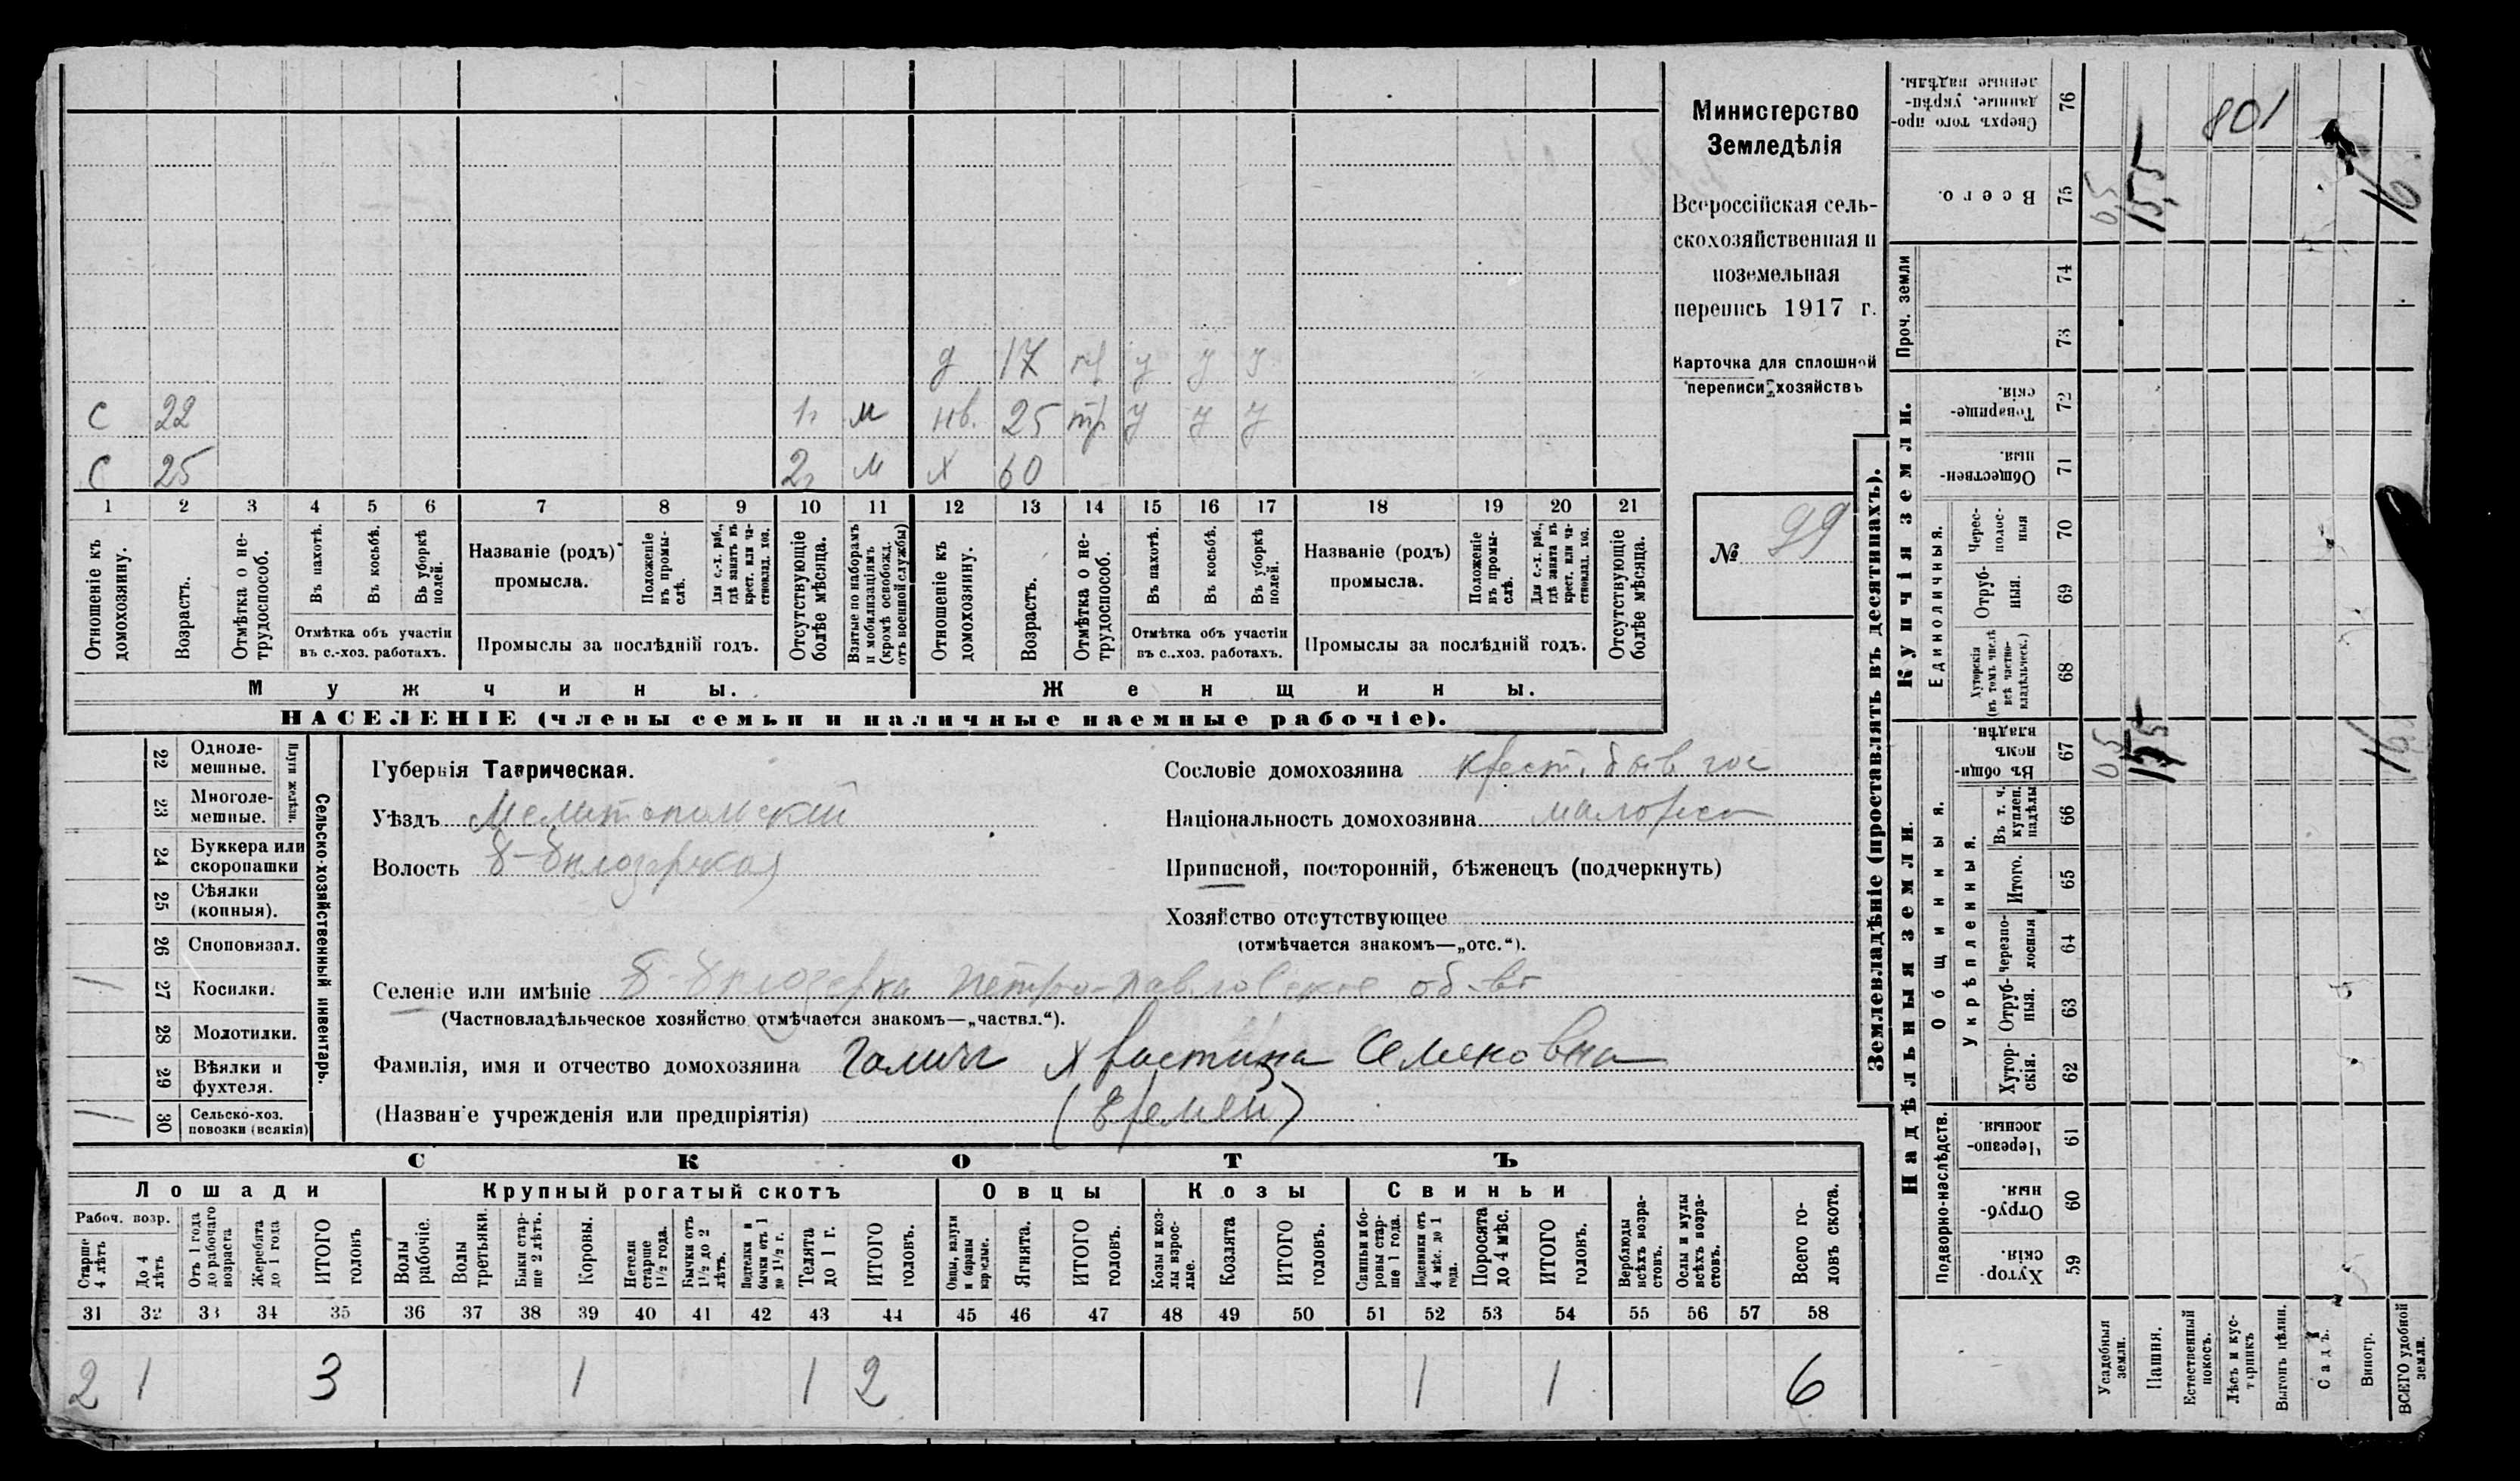 Министерство
Земледѣлія
Всероссійская сель-
скохозяйственная и
поземельная
перепись 1917 г.
Карточка для сплошной
переписи хозяйствъ
№ 99
д 17 тр у у у
С 22 1г м нв. 25 тр у у у
С 25 2г м х 60
1 2 3 4 5 6 7 8 9 10 11 12 13 14 15 16 17 18 19 20 21
Отношеніе къ домохозяину.
Возрастъ.
Отмѣтка о не-трудоспособ.
Въ пахотѣ.
Въ косьбѣ.
Въ уборкѣ полей.
Отмѣтка объ участіи
въ с.-хоз. работахъ.
Названіе (родъ)
промысла.
Положеніе въ промы-слѣ.
Для с.-х. раб., гдѣ занятъ въ крест. или ча-стновлад. хоз.
Промыслы за послѣдній годъ.
Отсутствующіе болѣе мѣсяца.
Взятые по наборамъ и мобилизаціямъ (кромѣ освобожд. отъ военной службы)
Отношеніе къ домохозяину.
Возрастъ.
Отмѣтка о не-трудоспособ.
Въ пахотѣ.
Въ косьбѣ.
Въ уборкѣ полей.
Отмѣтка объ участіи
въ с.-хоз. работахъ.
Названіе (родъ)
промысла.
Положеніе въ промы-слѣ.
Для с.-х. раб., гдѣ занята въ крест. или ча-стновлад. хоз.
Промыслы за послѣдній годъ.
Отсутствующіе болѣе мѣсяца.
Мужчины. Женщины.
НАСЕЛЕНІЕ (члены семьи и наличные наемные рабочіе).
Сельско-хозяйственный инвентарь.
Плуги желѣзн.
22 Одноле-мешные.
23 Многоле-мешные.
24 Буккера или скоропашки
25 Сѣялки (конныя).
26 Сноповязал.
1 27 Косилки.
28 Молотилки.
29 Вѣялки и фухтеля.
1 30 Сельско-хоз. повозки (всякія)
Губернія Таврическая.
Уѣздъ Мелитопольскій
Волость Б-Бѣлозерская
Сословіе домохозяина крест. быв гос
Національность домохозяина малорос
Приписной, посторонній, бѣженецъ (подчеркнуть)
Хозяйство отсутствующее
(отмѣчается знакомъ—„отс.“).
Селеніе или имѣніе Б-Бѣлозерка Петро-Павловское об-во
(Частновладѣльческое хозяйство отмѣчается знакомъ—„частвл.“).
Фамилія, имя и отчество домохозяина Галичъ Христина Семеновна
(Названіе учрежденія или предпріятія) (Еремей)
СКОТЪ
Лошади Крупный рогатый скотъ Овцы Козы Свиньи
Рабоч. возр.
Старше 4 лѣтъ
До 4 лѣтъ
Отъ 1 года до рабочаго возраста
Жеребята до 1 года
ИТОГО головъ
Волы рабочіе.
Волы третьяки.
Быки стар-ше 2 лѣтъ.
Коровы.
Нетели старше 1½ года.
Бычки отъ 1½ до 2 лѣтъ.
Подтелки и бычки отъ 1 до 1½ г.
Телята до 1 г.
ИТОГО головъ.
Овцы, валухи и бараны взрослые.
Ягнята.
ИТОГО головъ.
Козы и коз-лы взрос-лые.
Козлята
ИТОГО головъ.
Свиньи бо-ровы стар-ше 1 года.
Подсвинки отъ 4 мѣс. до 1 года.
Поросята до 4 мѣс.
ИТОГО головъ.
Верблюды всѣхъ возра-стовъ.
Ослы и мулы всѣхъ возра-стовъ.
Всего го-ловъ скота.
31 32 33 34 35 36 37 38 39 40 41 42 43 44 45 46 47 48 49 50 51 52 53 54 55 56 57 58
2 1 3 1 1 2 1 1 6
Землевладѣніе (проставлять въ десятинахъ).
Надѣльныя земли. Купчія земли. Проч. земли
Подворно-наслѣдств. Общинныя. Укрѣпленныя. Единоличныя.
Сверхъ того про-данные, укрѣп-ленные надѣлы. 76 801
Всего. 75 0,5 15,5 16
74
73
Товарище-скія. 72
Обществен-ныя. 71
Черес-полос-ныя 70
Отруб-ныя. 69
Хуторскія (въ томъ числѣ всѣ частно-владѣльческ.) 68
Въ общин-номъ владѣн. 67 0,5 15,5 16
Въ т. ч. куплен. надѣлы 66
Итого. 65
Черезпо-лосныя 64
Отруб-ныя. 63
Хутор-скія. 62
Черезпо-лосныя. 61
Отруб-ныя. 60
Хутор-скія. 59
Усадебныя земли.
Пашня.
Естественный покосъ.
Лѣсъ и кус-тарникъ
Выгонъ цѣлин.
Садъ.
Виногр.
ВСЕГО удобной земли.